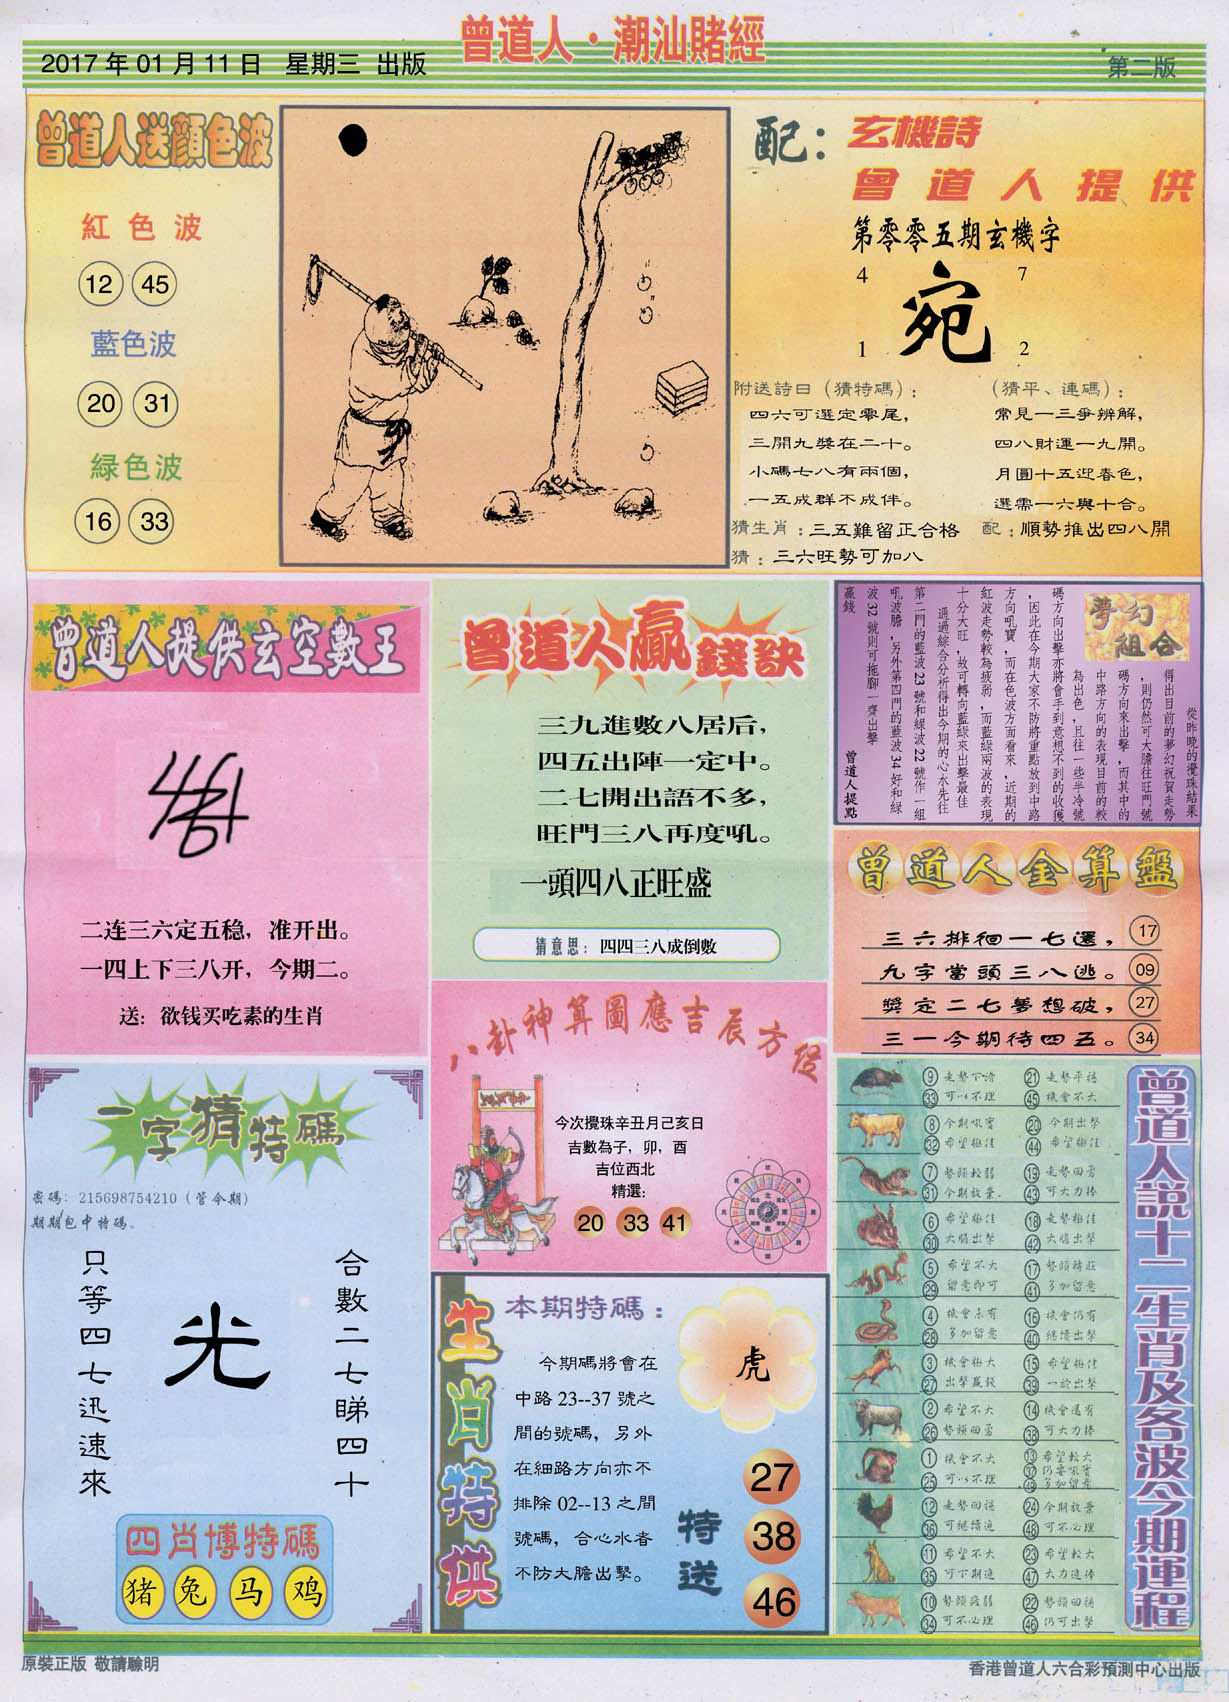 曾道人·潮汕賭經
2017年01月11日 星期三 出版
第二版
曾道人送顏色波
紅色波
12 45
藍色波
20 31
緑色波
16 33
配：玄機詩
曾道人提供
第零零五期玄機字
4 7
宛
1 2
附送詩曰（猜特碼）：
四六可選定零尾，
三開九獎在二十。
小碼七八有兩個，
一五成群不成伴。
（猜平、連碼）：
常見一三爭辨解，
四八財運一九開。
月圓十五迎春色，
選需一六與十合。
猜生肖：三五難留正合格
配：順勢推出四八開
猜：三六旺勢可加八
曾道人提供玄空數王
二连三六定五稳，准开出。
一四上下三八开，今期二。
送：欲钱买吃素的生肖
曾道人贏錢訣
三九進數八居后，
四五出陣一定中。
二七開出語不多，
旺門三八再度吼。
一頭四八正旺盛
猜意思：四四三八成倒數
夢幻組合
從昨晚的攪珠結果
得出目前的夢幻祝賀走勢
，則仍然可大膽往旺門號
碼方向來出擊，而其中的
中路方向的表現目前的較
為出色，且往一些半冷號
碼方向出擊亦將會手到意想不到的收獲
，因此在今期大家不防將重點放到中路
方向吼寶，而在色波方面看來，近期的
紅波走勢較為疲弱，而藍綠兩波的表現
十分大旺，故可轉向藍綠來出擊最佳
通過綜合分析得出今期的心水先往
第二門的藍波23號和綠波22號作一組
吼波膽，另外第四門的藍波34好和綠
波32號則可拖腳一齊出擊
贏錢
曾道人提點
曾道人金算盤
三六排徊一七選， 17
九字當頭三八逃。 09
獎定二七夢想破， 27
三一今期待四五。 34
八卦神算圖應吉辰方位
今次攪珠辛丑月己亥日
吉數為子，卯，酉
吉位西北
精選：
20 33 41
一字猜特碼
密碼：215698754210（管今期）
期期包中特碼。
合數二七睇四十
光
只等四七迅速來
四肖博特碼
猪 兔 马 鸡
生肖特供
本期特碼：
虎
今期碼將會在
中路23--37號之
間的號碼，另外
在細路方向亦不
排除02--13之間
號碼，合心水者
不防大膽出擊。
特送
27
38
46
曾道人說十二生肖及各波今期運程
9 走勢下滑 21 走勢平穩
33 可以不理 45 機會不大
8 今期吼寶 20 今期出擊
32 希望極佳 44 希望極佳
7 勢頭較弱 19 走勢回勇
31 今期放棄. 43 可大力捧
6 希望極佳 18 走勢極佳
30 大膽出擊 42 大膽出擊
5 希望不大 17 勢頭轉旺
29 留意即可 41 多加留意
4 機會未有 16 機會仍有
28 多加留意 40 繼續出擊
3 機會極大 15 希望極佳
27 出擊贏錢 39 一於出擊
2 希望不大 14 機會還有
26 勢頭回勇 38 可大力捧
1 機會不大 13 希望較大
25 可以不理 37 仍要吼寶
49 多加留意
12 走勢回穩 24 今期放棄
36 可繼續追 48 可不必理
11 希望不大 23 希望較大
35 可下期追 47 大力追捧
10 勢頭疲弱 22 勢頭回穩
34 可不必理 46 仍可出擊
原裝正版 敬請驗明
香港曾道人六合彩預測中心出版